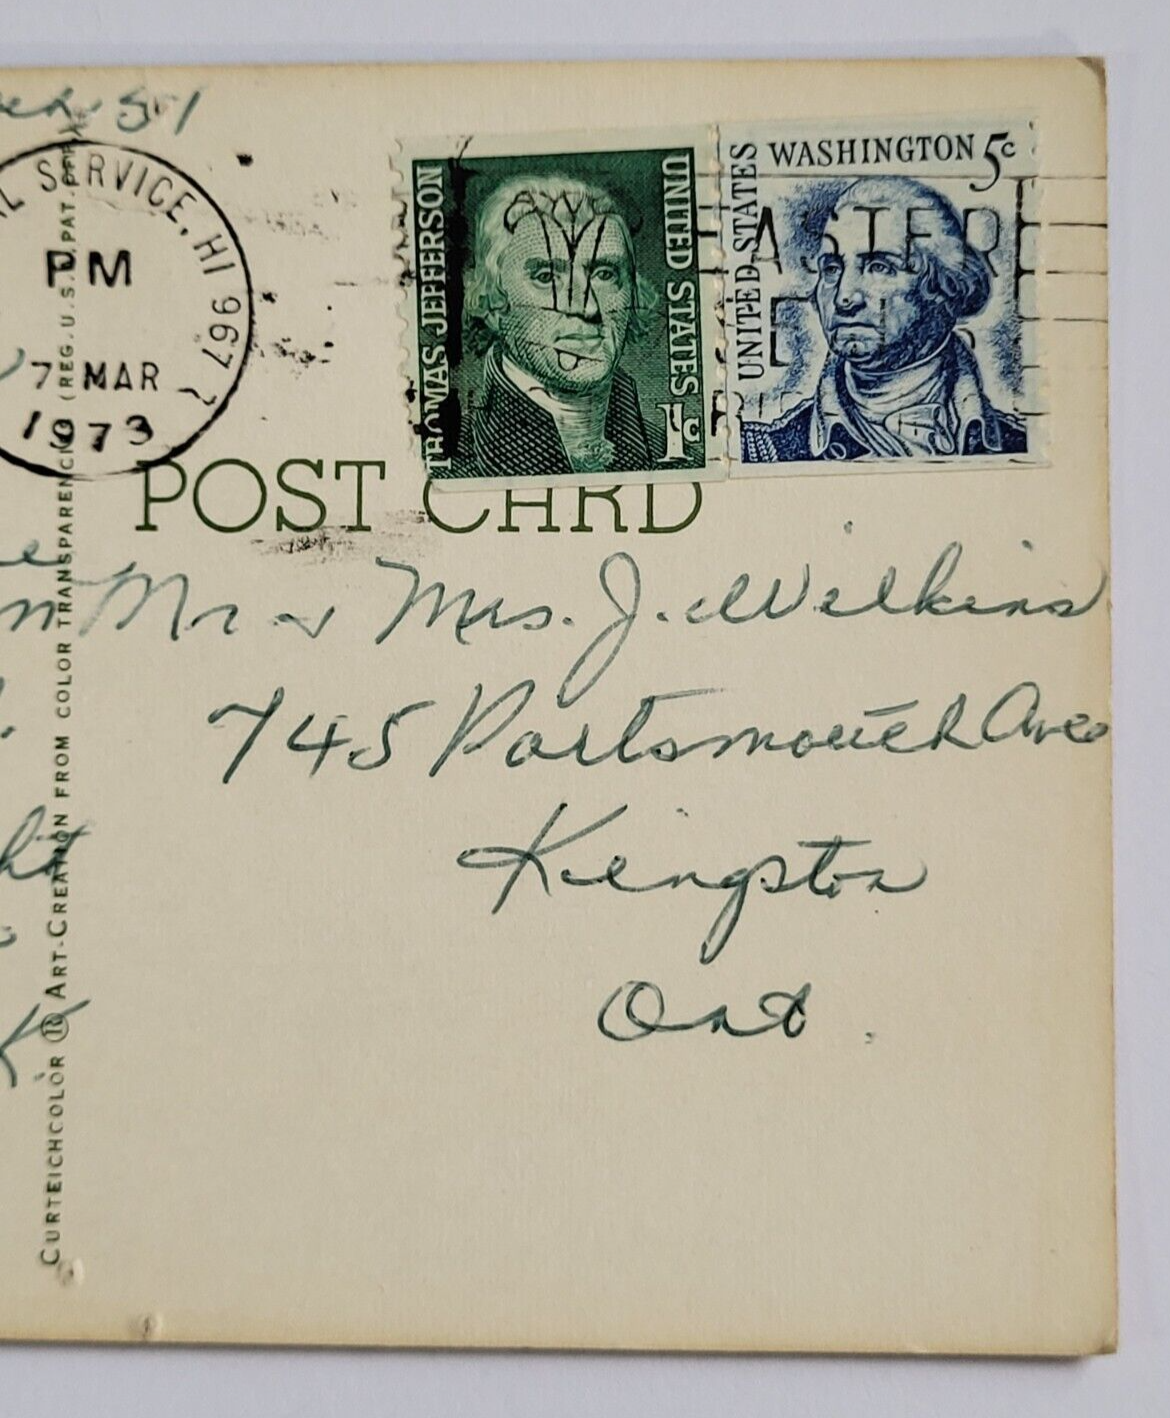 51
SERVICE, HI 967
PM
7 MAR
1973
THOMAS JEFFERSON
UNITED STATES
1c
UNITED STATES
WASHINGTON 5c
EASTER
POST CARD
Mr & Mrs. J. Wilkins
745 Portsmouth Ave
Kingston
Ont.
CURTEICHCOLOR ® ART-CREATION FROM COLOR TRANSPARENCY (REG. U.S.A. PAT. OFF.)